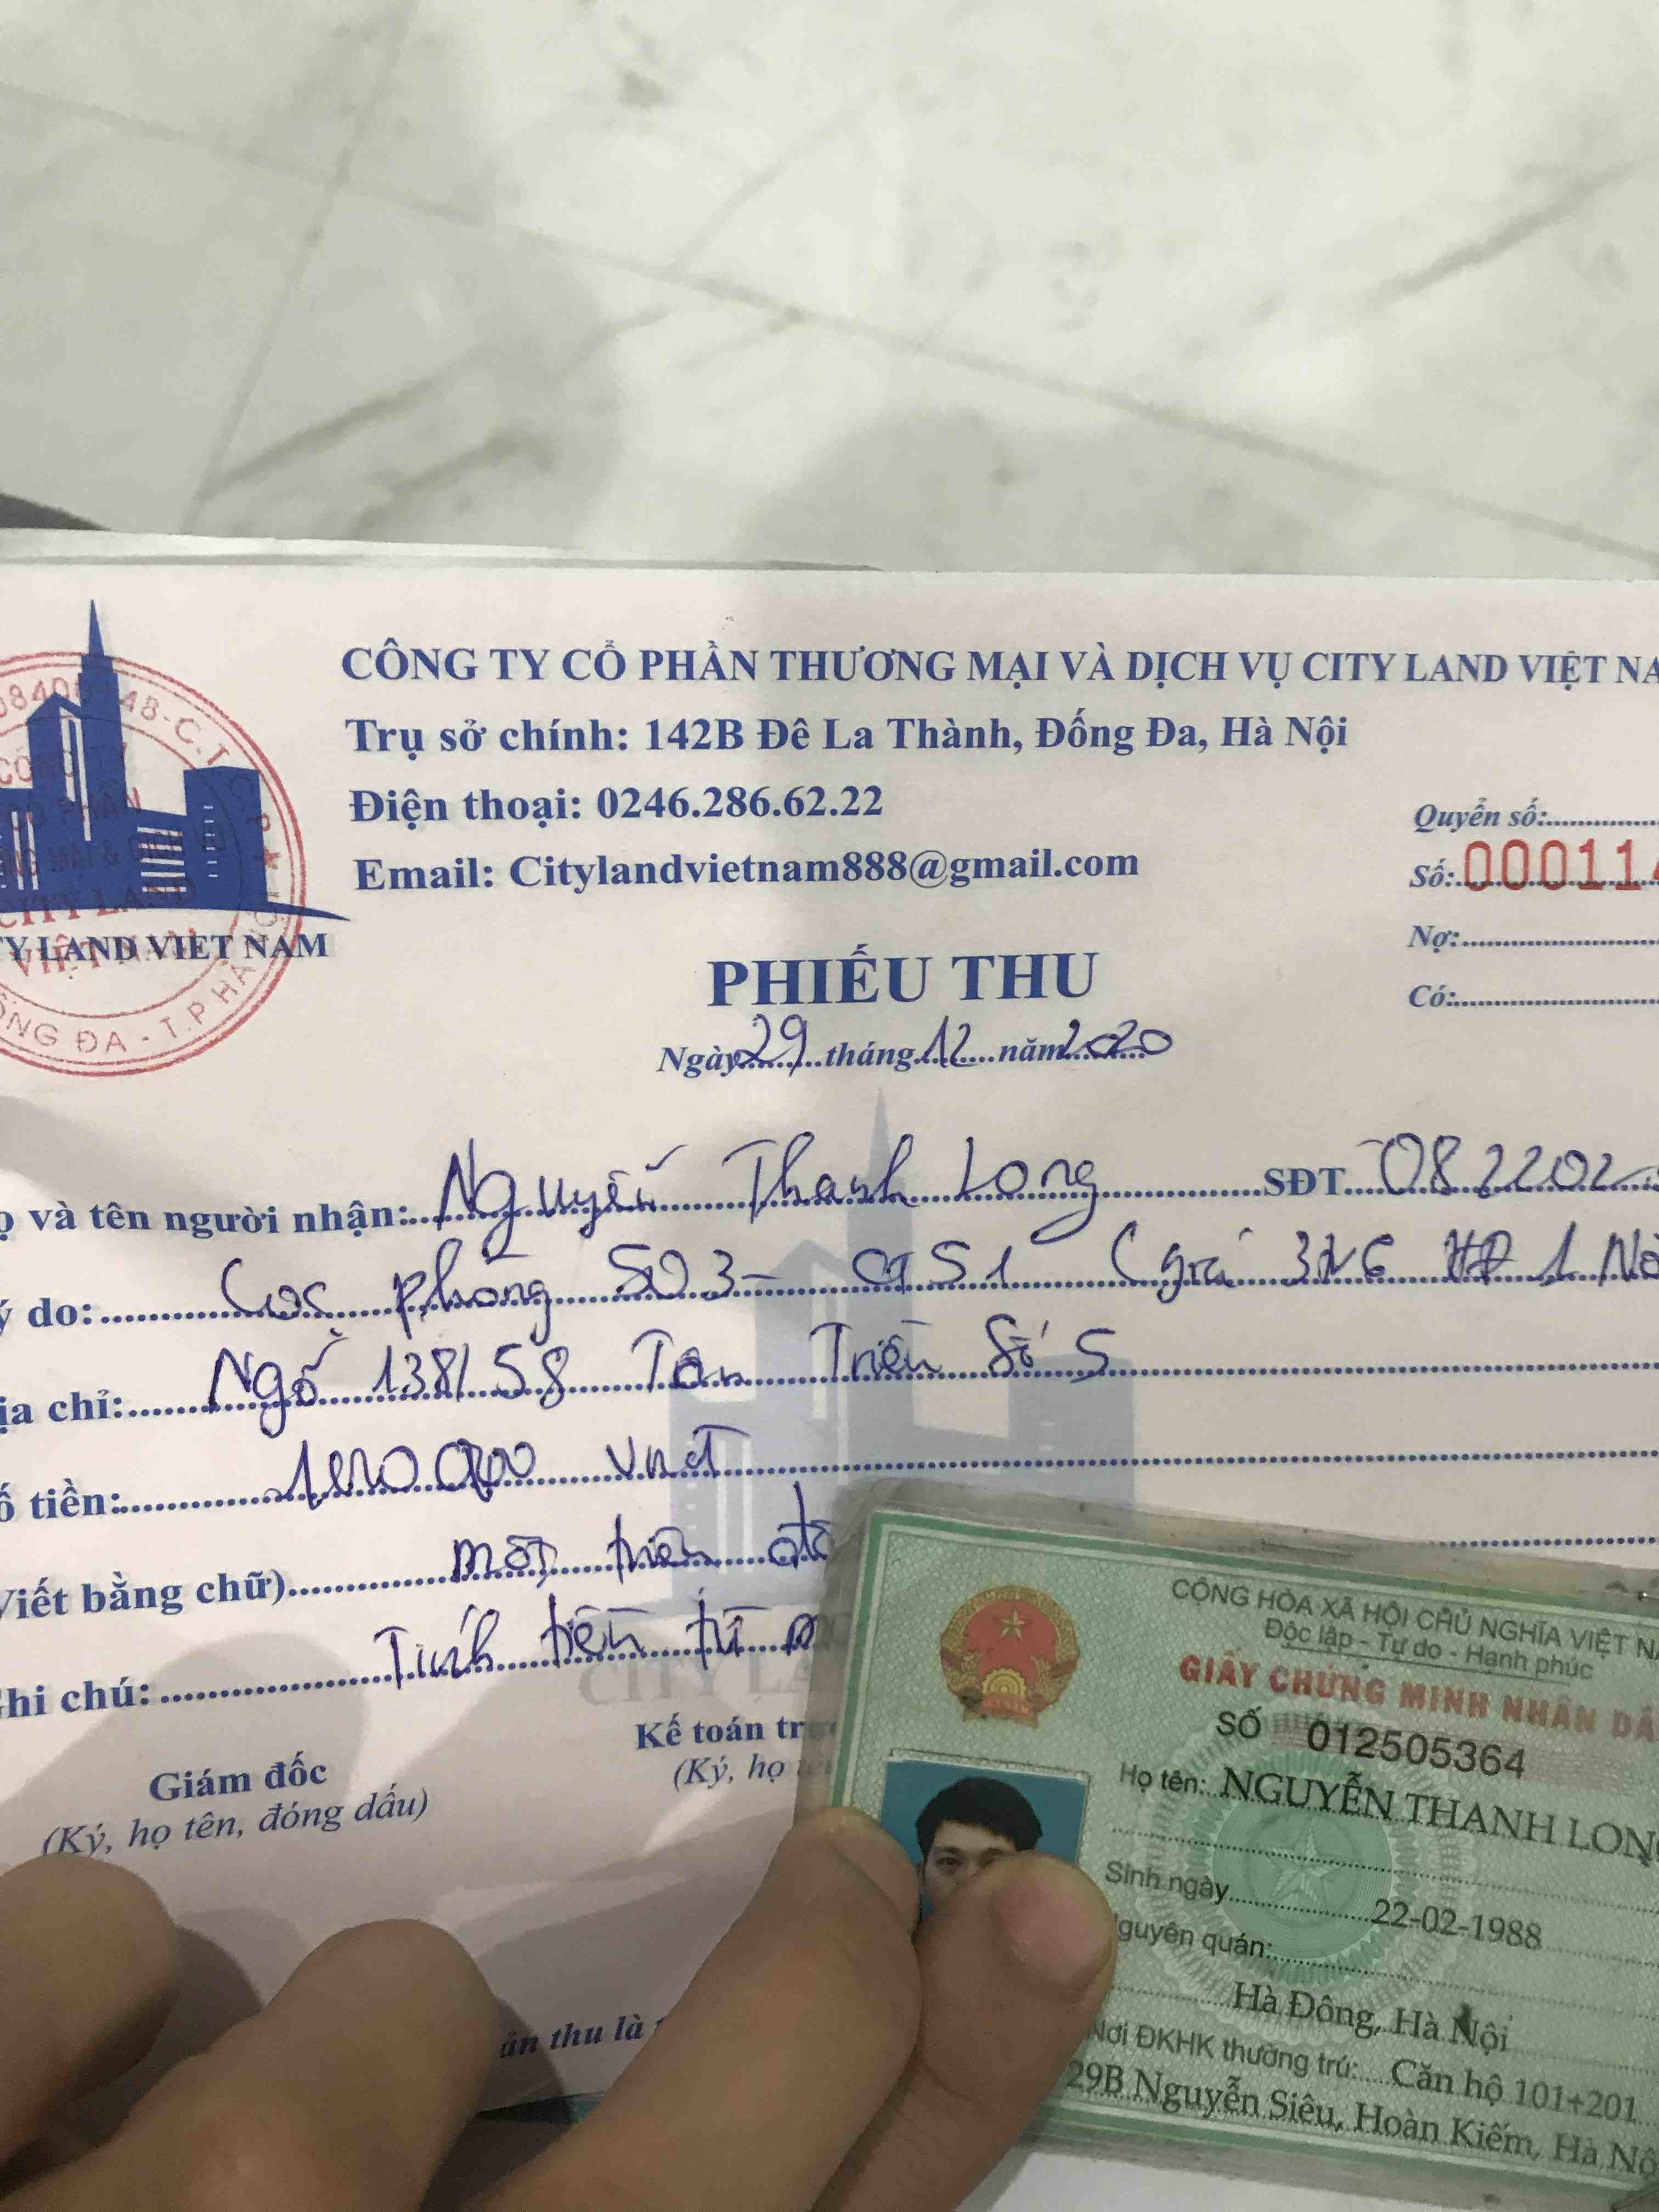 CÔNG TY CỔ PHẦN THƯƠNG MẠI VÀ DỊCH VỤ CITY LAND VIỆT NA
Trụ sở chính: 142B Đê La Thành, Đống Đa, Hà Nội
Điện thoại: 0246.286.62.22
Email: Citylandvietnam888@gmail.com
Quyển số:
Số: 00011
Nợ:
Có:
TY LAND VIET NAM
ỐNG ĐA - T.P HÀ
PHIẾU THU
Ngày 29 tháng 12 năm 2020
và tên người nhận: Nguyễn Thanh Long SĐT 082202
do: Cọc phòng 503 - (giá 3tr6 HĐ 1 Nă
ịa chỉ: Ngõ 138/58 Tân Triều Số 5
ố tiền: 1000.000 vnđ
Viết bằng chữ) một triệu đồ
Ghi chú: Tính tiền từ
Giám đốc
(Ký, họ tên, đóng dấu)
Kế toán trư
(Ký, họ
ận thu là
CỘNG HÒA XÃ HỘI CHỦ NGHĨA VIỆT NA
Độc lập - Tự do - Hạnh phúc
GIẤY CHỨNG MINH NHÂN DÂ
SỐ 012505364
Họ tên: NGUYỄN THANH LONG
Sinh ngày 22-02-1988
Nguyên quán:
Hà Đông, Hà Nội
Nơi ĐKHK thường trú: Căn hộ 101+201
29B Nguyễn Siêu, Hoàn Kiếm, Hà Nộ